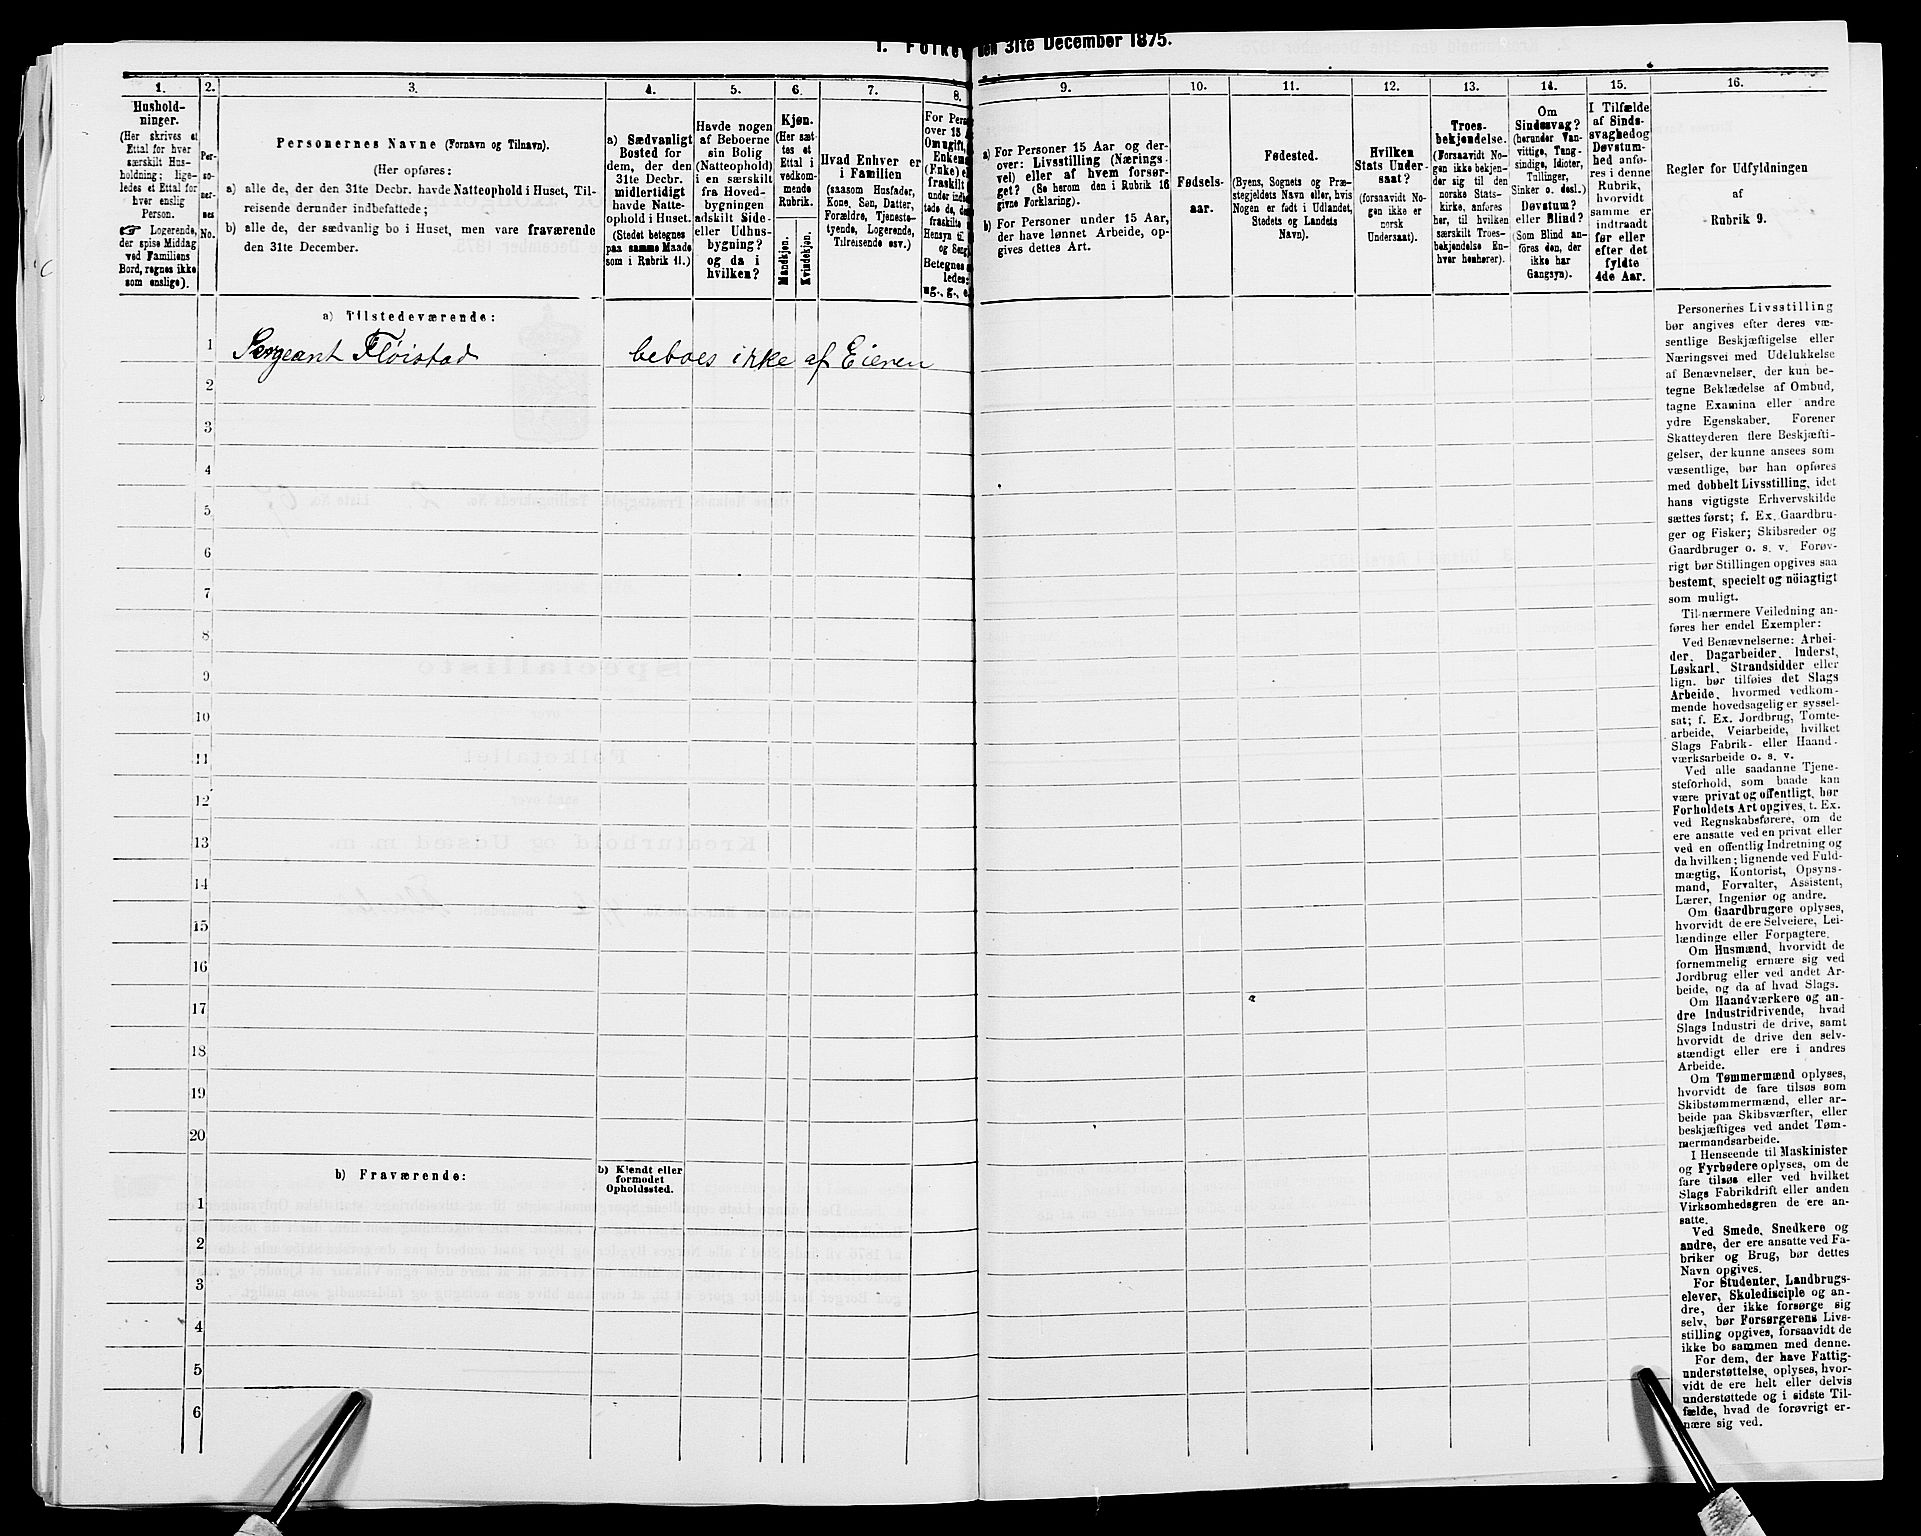 1. Folke
den 31te December 1875.
1.
2.
3.
4.
5.
6.
7.
8.
9.
10.
11.
12.
13.
14.
15.
16.
Hushold-
ninger.
(Her skrives et
Ettal for hver
særskilt Hus-
holdning; lige-
ledes et Ettal for
hver enslig
Person.
☞ Logerende,
der spise Middag
ved Familiens
Bord, regnes ikke
som enslige).
Per-
so-
ner-
nes
No.
Personernes Navne (Fornavn og Tilnavn).
(Her opføres:
a) alle de, der den 31te Decbr. havde Natteophold i Huset, Til-
reisende derunder indbefattede;
b) alle de, der sædvanlig bo i Huset, men vare fraværende
den 31te December.
a) Sædvanligt
Bosted for
dem, der den
31te Decbr.
midlertidigt
havde Natte-
ophold i Huset.
(Stedet betegnes
paa samme Maade
som i Rubrik 11.)
Havde nogen
af Beboerne
sin Bolig
(Natteophold)
i en særskilt
fra Hoved-
bygningen
adskilt Side-
eller Udhus-
bygning?
og da i
hvilken?
Kjøn.
(Her sæt-
tes et
Ettal i
vedkom-
mende
Rubrik.
Mandkjøn.
Kvindekjøn.
Hvad Enhver er
i Familien
(saasom Husfader,
Kone, Søn, Datter,
Forældre, Tjeneste-
tyende, Logerende,
Tilreisende osv.)
For Pers
over 15 A
Om ugift,
Enkem
(Enke) el
fraskilt
under indb
tede de, de
fraskilte
Hensyn til
og Seng
Betegnes
ledes:
ug., g., e.
a) For Personer 15 Aar og der-
over: Livsstilling (Nærings-
vei) eller af hvem forsør-
get? (Se herom den i Rubrik 16
givne Forklaring).
b) For Personer under 15 Aar,
der have lønnet Arbeide, op-
gives dettes Art.
Fødsels-
aar.
Fødested.
(Byens, Sognets og Præ-
stegjeldets Navn eller, hvis
Nogen er født i Udlandet,
Stedets og Landets
Navn).
Hvilken
Stats Under-
saat?
(forsaavidt No-
gen ikke er
norsk
Undersaat).
Troes-
bekjendelse.
(Forsaavidt No-
gen ikke bekjen-
der sig til den
norske Stats-
kirke, anføres
her, til hvilken
særskilt Troes-
bekjendelse En-
hver henhører).
Om
Sindssvag?
(herunder Van-
vittige, Tung-
sindige, Idioter,
Tullinger,
Sinker o. desl.)
Døvstum?
eller Blind?
(Som Blind an-
føres den, der
ikke har
Gangsyn).
I Tilfælde
af Sinds-
svaghed og
Døvstum-
hed anfø-
res i denne
Rubrik,
hvorvidt
samme er
indtraadt
før eller
efter det
fyldte
4de Aar.
Regler for Udfyldningen
af
Rubrik 9.
a) Tilstedeværende:
1 Sergeant Fløistad beboes ikke af Eieren
2
3
4
5
6
7
8
9
10
11
12
13
14
15
16
17
18
19
20
b) Fraværende:
b) Kjendt eller
formodet
Opholdssted.
1
2
3
4
5
6
Personernes Livsstilling
bør angives efter deres væ-
sentlige Beskjæftigelse eller
Næringsvei med Udelukkelse
af Benævnelser, der kun be-
tegne Beklædelse af Ombud,
tagne Examina eller andre
ydre Egenskaber. Forener
Skatteyderen flere Beskjæfti-
gelser, der kunne ansees som
væsentlige, bør han opføres
med dobbelt Livsstilling, idet
hans vigtigste Erhvervskilde
sættes først; f. Ex. Gaardbru-
ger og Fisker; Skibsreder og
Gaardbruger o. s. v. Forøv-
rigt bør Stillingen opgives saa
bestemt, specielt og nöiagtigt
som muligt.
Til nærmere Veiledning an-
føres her endel Exempler:
Ved Benævnelserne: Arbei-
der, Dagarbeider, Inderst,
Løskarl, Strandsidder eller
lign. bør tilføies det Slags
Arbeide, hvormed vedkom-
mende hovedsagelig er syssel-
sat; f. Ex. Jordbrug, Tomte-
arbeide, Veiarbeide, hvilket
Slags Fabrik- eller Haand-
værksarbeide o. s. v.
Ved alle saadanne Tjene-
steforhold, som baade kan
være privat og offentligt, bør
Forholdets Art opgives, t. Ex.
ved Regnskabsførere, om de
ere ansatte ved en privat eller
ved en offentlig Indretning og
da hvilken; lignende ved Fuld-
mægtig, Kontorist, Opsyns-
mand, Forvalter, Assistent,
Lærer, Ingeniør og andre.
Om Gaardbrugere oplyses,
hvorvidt de ere Selveiere, Lei-
lændinge eller Forpagtere.
Om Husmænd, hvorvidt de
fornemmelig ernære sig ved
Jordbrug eller ved andet Ar-
beide, og da af hvad Slags.
Om Haandværkere og an-
dre Industridrivende, hvad
Slags Industri de drive, samt
hvorvidt de drive den selv-
stændigt eller ere i andres
Arbeide.
Om Tømmermænd oplyses,
hvorvidt de fare tilsøs som
Skibstømmermænd, eller ar-
beide paa Skibsværfter, eller
beskjæftiges ved andet Tøm-
mermandsarbeide.
I Henseende til Maskinister
og Fyrbødere oplyses, om de
fare tilsøs eller ved hvilket
Slags Fabrikdrift eller anden
Virksomhedsgren de ere an-
satte.
Ved Smede, Snedkere og
andre, der ere ansatte ved Fa-
briker og Brug, bør dettes
Navn opgives.
For Studenter, Landbrugs-
elever, Skoledisciple og an-
dre, der ikke forsørge sig
selv, bør Forsørgerens Livs-
stilling opgives, forsaavidt de
ikke bo sammen med denne.
For dem, der have Fattig-
understøttelse, oplyses, hvor-
vidt de ere helt eller delvis
understøttede og i sidste Til-
fælde, hvad de forøvrigt er-
nære sig ved.